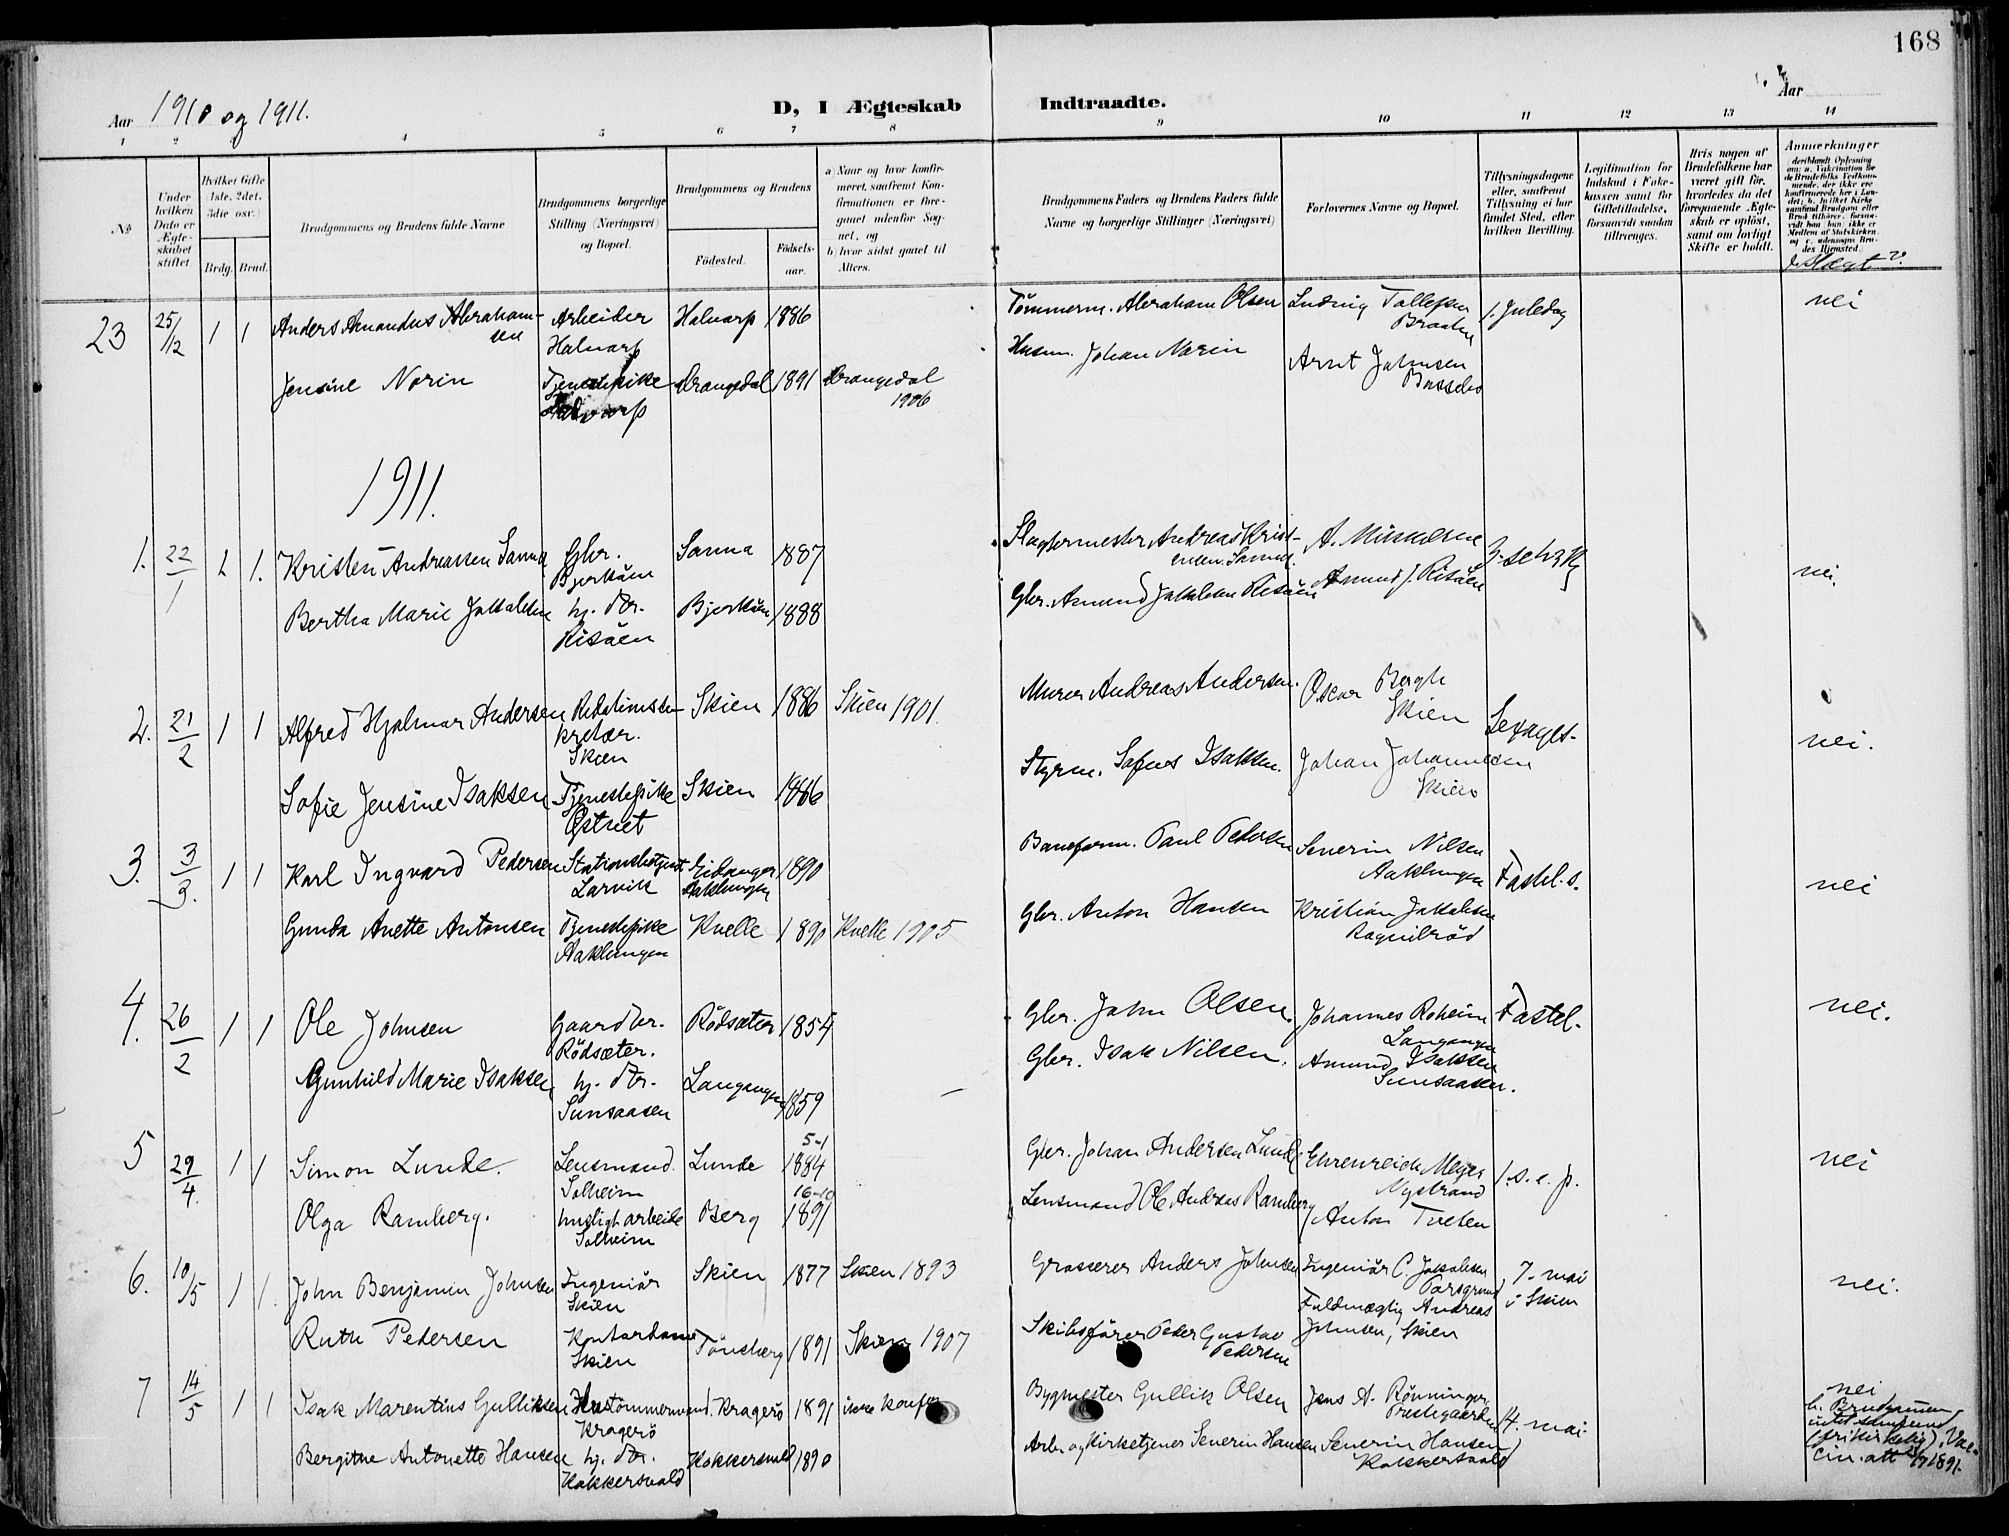 168
Aar 1910 og 1911.
D, I Ægteskab Indtraadte.
Aar
1 2 3 4 5 6 7 8 9 10 11 12 13 14
No
Under hvilken Dato er Ægteskabet stiftet
Hvilket Gifte (1ste, 2det, 3die osv.)
Brdg. Brud.
Brudgommens og Brudens fulde Navne
Brudgommens borgerlige Stilling (Næringsvei) og Bopæl.
Brudgommens og Brudens
Födested.
Födsels-aar.
a) Naar og hvor konfirmeret, saafremt Konfirmationen er foregaaet udenfor Sognet, og
b) hvor sidst gaaet til Alters.
Brudgommens Faders og Brudens Faders fulde Navne og borgerlige Stillinger (Næringsvei)
Forlovernes Navne og Bopæl.
Tillysningsdagene eller, saafremt Tillysning ei har fundet Sted, efter hvilken Bevilling.
Legitimation for Indskud i Enkekassen samt for Giftetilladelse, forsaavidt saadan tiltrænges.
Hvis nogen af Brudefolkene har været gift før, hvorledes da det foregaaende Ægteskab er opløst, samt om lovligt Skifte er holdt.
Anmærkninger
i slægt?
23 25/12 1 1 Anders Amandus Abrahamsen Arbeider Halvarp Halvarp 1886 Tømmerm. Abraham Olsen Ludvig Tollefsen Braaten 1. Juledag nei
Jensine Norin Tjenestepike Drangedal 1891 Drangedal 1906 Husm. Johan Norin Arnt Johnsen Bassebo
1911.
1. 22/1 1. Kristen Andreassen Sanna Gbr. Bjerkåen Sanna 1887 Slagtermester Andreas Kristensen Sanna A. nei.
Bertha Marie Jakobsen hj. dtr. Risåen Bjerkåen 1888 Gbr. Amund Jakobsen Risåen Amund J. Risåen
2. 21/2 1 1 Alfred Hjalmar Andersen Skien Skien 1886 Skien 1901 Murer Andreas Andersen. Oscar Bergh Skien Sexages. nei.
Sofie Jensine Isaksen Tjenestepike Østvet Skien 1886 Styrm. Sofus Isaksen. Johan Johannesen Skien
3. 3/3. 1 1 Karl Ingvard Pedersen Stationsbetjent Larvik Eidanger Aaklungen 1890 Baneform. Paul Pedersen Severin Nilsen Aaklungen Fastel. s. nei
Gunda Anette Antonsen Tjenestepike Aaklungen Kvelle 1890 Kvelle 1905 Gbr. Anton Hansen Kristian Jakobsen Ragnilrød
4. 26/2 1 1 Ole Johnsen Gaardbr. Rødsæter. Rødsæter 1854 Gbr. John Olsen. Johannes Roheim Langangen Fastel. nei.
Gunhild Marie Isaksen hj. dtr. Sunsaasen Langangen 1859 Gbr. Isak Nilsen. Amund Isaksen Sunsaasen.
5 29/4. 1 1 Simon Lunde. Lensmand. Solheim Lunde 5-1 1884 Gbr. Johan Andersen Lunde Ehrenreich Meyer Nystrand 1. s. e. p. nei
Olga Ramberg. husligt arbeide Solheim Berg 16-10 1891 Lensmand Ole Andreas Ramberg Anton Tveten
6. 10/5 1 1. John Benjamin Johnsen Ingeniør Skien Skien 1877 Skien 1893 Grosserer Anders Johnsen Ingeniør C. Jakobsen Porsgrund 7. mai i Skien nei.
Ruth Pedersen Kontordame Skien Tønsberg 1891 Skien 1907 Skibsfører Peder Gustav Pedersen Fuldmægtig Andreas Johnsen, Skien
7 14/5 1 1 Isak Marentius Gulliksen Hustømmermand. Kragerø Kragerø 1891 ikke konf. Bygmester Gullik Olsen Jens A. Rønningen, Prestegaarden 14. mai nei b. Brudgommen intet samfund (frikirkelig). Vaccin. att 1891.
Bergitne Antonette Hansen hj. dtr. Kokkersvold Kokkersvold 1890 Arb. og kirketjener Severin Hansen Severin Hansen Kokkersvold